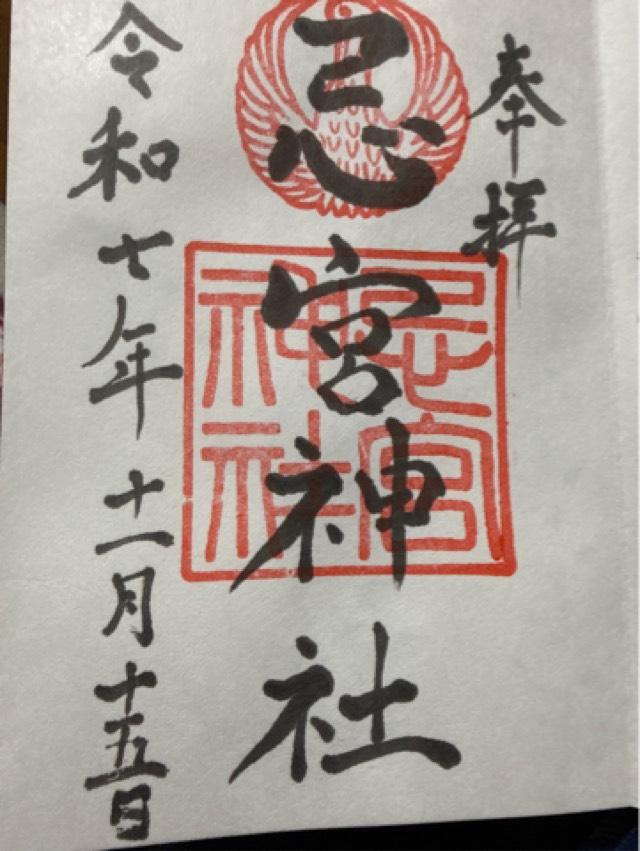 奉拝
忌宮神社
忌宮
神社
令和七年十一月十五日